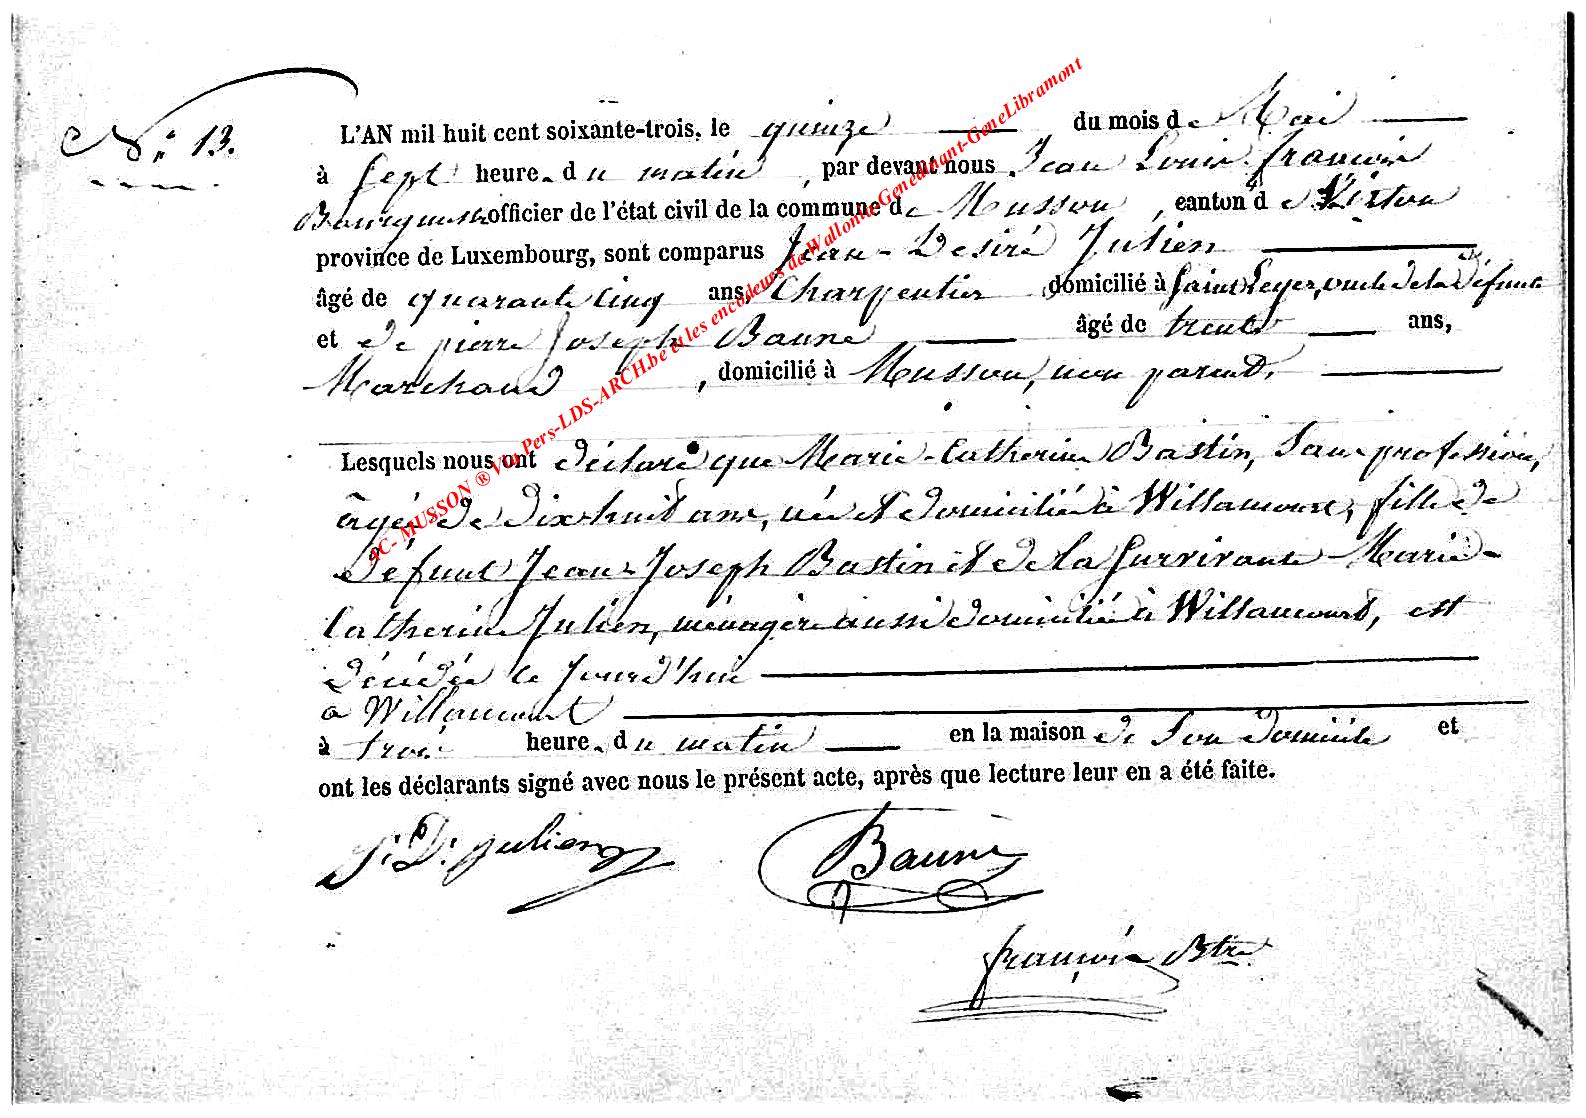 N° 13.
L'AN mil huit cent soixante-trois, le quinze du mois de Mai
à Sept heures du matin, par devant nous Jean Louis françois
Bourgmestre officier de l'état civil de la commune de Musson, canton de Virton
province de Luxembourg, sont comparus Jean-Desiré Julien
âgé de quarante cinq ans, Charpentier, domicilié à Saint Leger, oncle de la défunte
et de pierre Joseph Bauné âgé de trente ans,
Marchand, domicilié à Musson, non parent,
Lesquels nous ont déclaré que Marie-Catherine Bastin, Sans profession,
âgée de dix huit ans, née et domiciliée à Willancourt, fille de
défunt Jean-Joseph Bastin et de la Survivante Marie-
Catherine Julien, ménagère aussi domiciliée à Willancourt, est
décédée ce Jourd'hui
à Willancourt
à trois heures du matin en la maison de Son domicile et
ont les déclarants signé avec nous le présent acte, après que lecture leur en a été faite.
J. D. Julien
Bauné
françois Btre
9C- MUSSON ® Via Pers-LDS-ARCH.be et les encodeurs de Wallonia-Genedinant-GeneLibramont